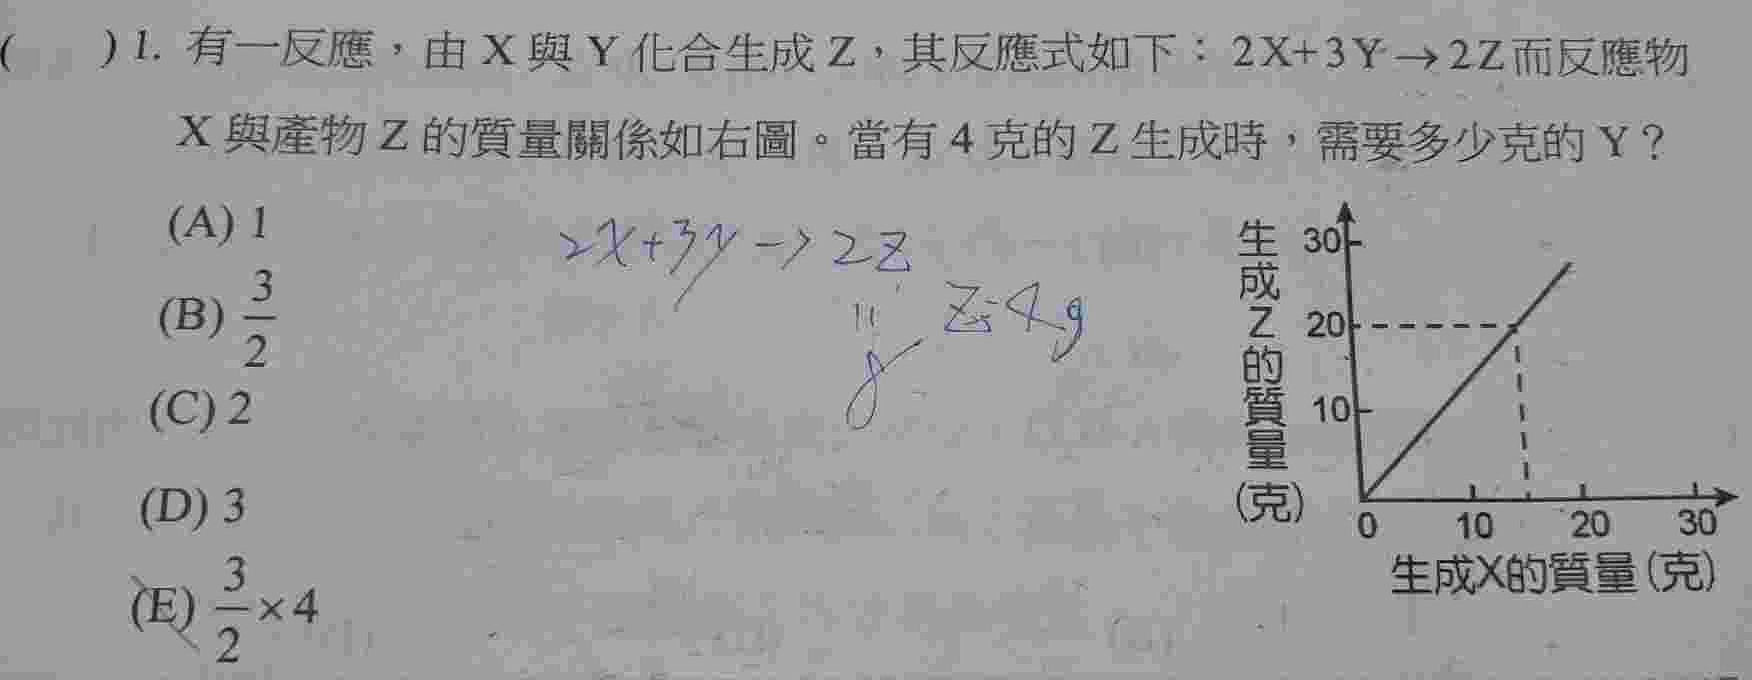 ( ) 1. 有一反應，由 X 與 Y 化合生成 Z，其反應式如下：2X+3Y→2Z而反應物
X 與產物 Z 的質量關係如右圖。當有 4 克的 Z 生成時，需要多少克的 Y？
(A) 1
(B) 3/2
(C) 2
(D) 3
(E) 3/2 ×4
2X+3Y→2Z
Z=4g
生成Z的質量(克)
30
20
10
0 10 20 30
生成X的質量(克)